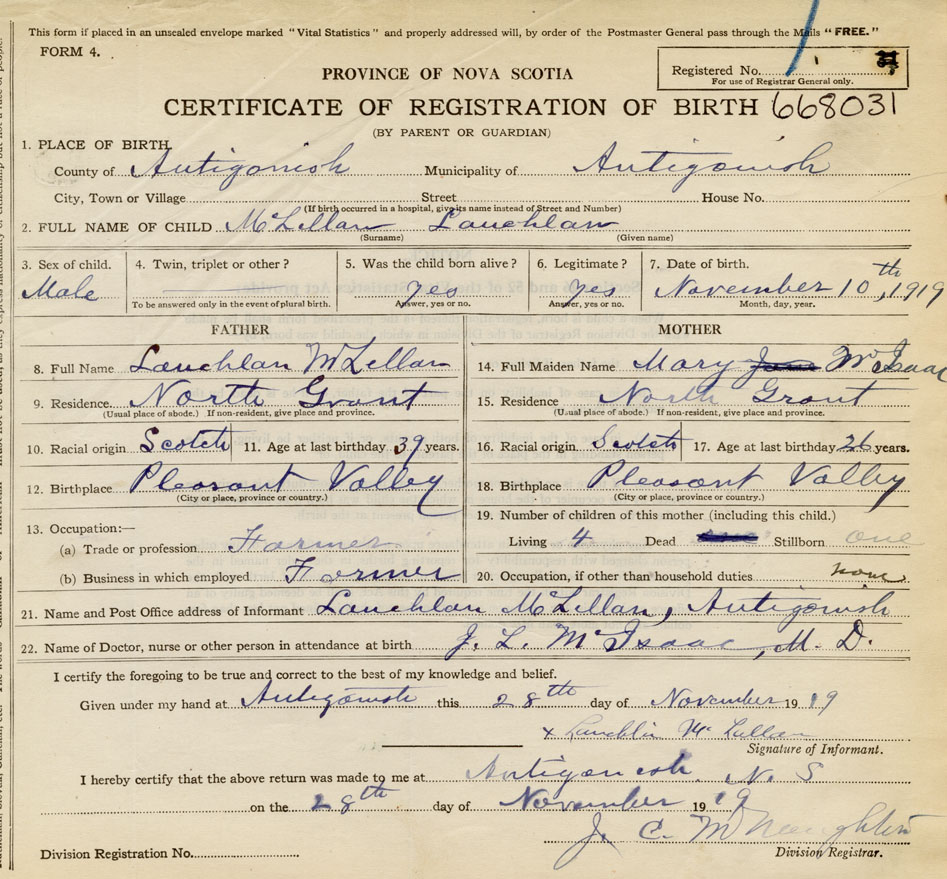 This form if placed in an unsealed envelope marked "Vital Statistics" and properly addressed will, by order of the Postmaster General pass through the Mails "FREE."
FORM 4.
Registered No.
For use of Registrar General only.
PROVINCE OF NOVA SCOTIA
CERTIFICATE OF REGISTRATION OF BIRTH 668031
(BY PARENT OR GUARDIAN)
1. PLACE OF BIRTH
County of Antigonish Municipality of Antigonish
City, Town or Village Street House No.
(If birth occurred in a hospital, give its name instead of Street and Number)
2. FULL NAME OF CHILD McLellan Lauchlan
(Surname) (Given name)
3. Sex of child. 4. Twin, triplet or other? 5. Was the child born alive? 6. Legitimate? 7. Date of birth.
Male yes yes November 10th, 1919
To be answered only in the event of plural birth. Answer, yes or no. Answer, yes or no. Month, day, year.
FATHER MOTHER
8. Full Name Lauchlan McLellan 14. Full Maiden Name Mary Jane McIsaac
9. Residence. North Grant 15. Residence North Grant
(Usual place of abode.) If non-resident, give place and province. (Usual place of abode.) If non-resident, give place and province.
10. Racial origin Scotch 11. Age at last birthday 39 years. 16. Racial origin Scotch 17. Age at last birthday 26 years.
12. Birthplace Pleasant Valley 18. Birthplace Pleasant Valley
(City or place, province or country.) (City or place, province or country.)
13. Occupation:— 19. Number of children of this mother (including this child.)
(a) Trade or profession Farmer Living 4 Dead Stillborn one
(b) Business in which employed Farmer 20. Occupation, if other than household duties none
21. Name and Post Office address of Informant Lauchlan McLellan, Antigonish
22. Name of Doctor, nurse or other person in attendance at birth J. L. McIsaac, M. D.
I certify the foregoing to be true and correct to the best of my knowledge and belief.
Given under my hand at Antigonish this 28th day of November 1919
x Lauchlin McLellan
Signature of Informant.
I hereby certify that the above return was made to me at Antigonish N. S
on the 28th day of November 1919
J. C. McNaughton
Division Registration No. Division Registrar.